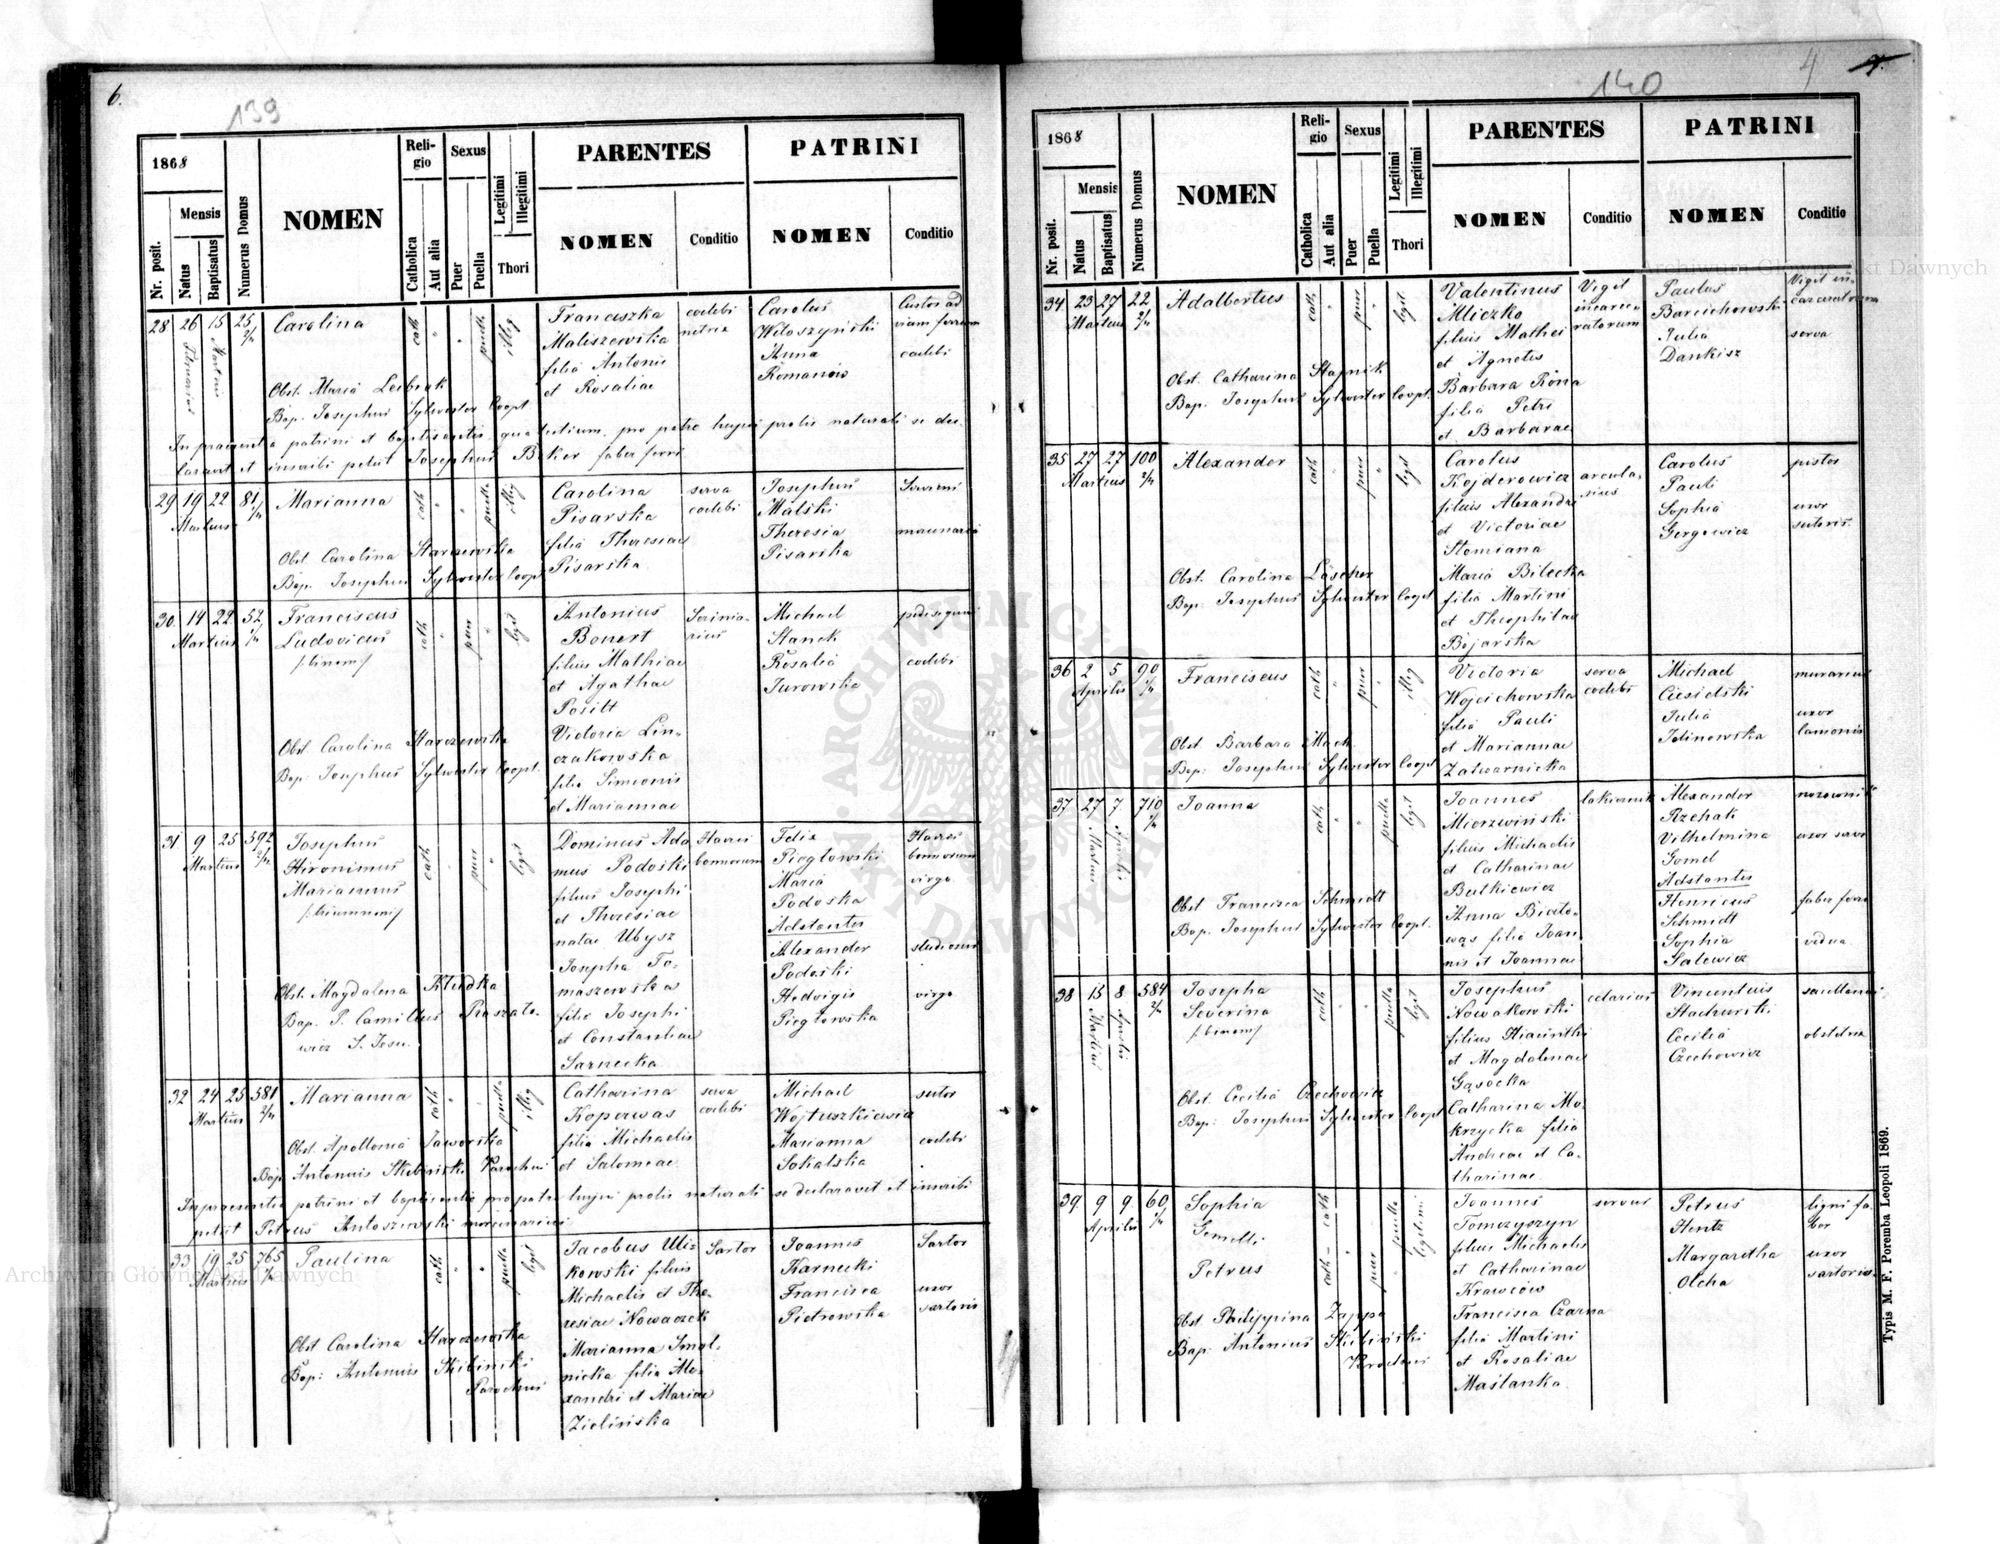 6.
139
1868
Nr. posit.
Mensis
Natus
Baptisatus
Numerus Domus
NOMEN
Reli-
gio
Catholica
Aut alia
Sexus
Puer
Puella
Legitimi
Illegitimi
Thori
PARENTES
NOMEN
Conditio
PATRINI
NOMEN
Conditio
28 26 15 25 2/4 Carolina cath " " puella illeg
Februarius Martius
Franciszka coelebs Carolus Custos ad
Maliszewska Woloszyński viam ferream
filia Antonii Anna coelebs
et Rosaliae Romanow
Obst. Maria
Bap. Josephus Sylwester Coopt
In praesentia patrini et baptisantis pro patre hujus prolis naturali se dec-
laravit et inscribi petiit Josephus faber ferri
29 19 22 81 1/4 Marianna cath " " puella illeg
Martius
Carolina serva Josephus
Pisarska coelebs Malski
filia Theresiae Theresia
Pisarska Pisarska
Obst. Carolina Starczewska
Bap. Josephus Sylwester Coopt
30 14 22 52 1/4 Franciscus cath " puer " legit
Martius Ludovicus
Antonius Michael
Bonert Stanek
filius Mathiae Rosalia coelebs
et Agathae Jurowska
Positt
Victoria Lin-
czakowska
filia Simeonis
et Mariannae
Obst. Carolina Starczewska
Bap. Josephus Sylwester Coopt.
31 9 25 592 2/4 Josephus cath " puer " legit
Martius Hironimus
Mariannus
Dominus Ada- Haeres Felix Haeres
mus Podoski bonnorum Piegłowski bonnorum
filius Josephi Maria virgo
et Theresiae Podoska
natae Ubysz Adstantes
Josepha To- Alexander studiosus
maszewska Podoski
filia Josephi Hedvigis virgo
et Constantiae Piegłowska
Sarnecka
Obst. Magdalena Kludka
Bap. P. Camillus Praszało-
wicz S. Jesu.
32 24 25 581 2/4 Marianna cath " " puella illeg
Martius
Catharina serva Michael sutor
Koperwas coelebs Wojtuszkiewicz
filia Michaelis Marianna coelebs
et Salomeae Sokalska
Obst. Apollonia Jaworska
Bap. Antonius Skibiński Parochus
In praesentia patrini et baptisantis pro patre hujus prolis naturali se declaravit et inscribi
petiit Petrus Antoszewski mercenarius
33 19 25 765 1/4 Paulina cath " " puella legit
Martius
Jacobus Uli- Sartor Joannes Sartor
kowski filius Karnecki
Michaelis et The- Francisca uxor
resiae Nowaczek Pietrowska sartoris
Marianna Smol-
nicka filia Ale-
xandri et Mariae
Zielińska
Obst Carolina Starczewska
Bap: Antonius Skibiński
Parochus
140
4
7.
1868
Nr. posit.
Mensis
Natus
Baptisatus
Numerus Domus
NOMEN
Reli-
gio
Catholica
Aut alia
Sexus
Puer
Puella
Legitimi
Illegitimi
Thori
PARENTES
NOMEN
Conditio
PATRINI
NOMEN
Conditio
34 23 27 22 2/4 Adalbertus cath " puer " legit
Martius
Valentinus Vigil Paulus Vigil in-
Mliczko incarce- Barcichowski carceratorum
filius Mathei ratorum Julia serva
et Agnetis Dankisz
Barbara Róna
filia Petri
et Barbarae
Obst. Catharina Stapnik
Bap. Josephus Sylwester Coopt.
35 27 27 100 2/4 Alexander cath " puer " legit
Martius
Carolus arcula- Carolus pistor
Kojderowicz rius Pauli
filius Alexandri Sophia uxor
et Victoriae Gergowicz sutoris.
Stomiana
Maria Bilecka
filia Martini
et Theophilae
Bojarska
Obst. Carolina Löscher
Bap. Josephus Sylwester Coopt
36 2 5 90 1/4 Franciscus cath " puer " illeg
Aprilis
Victoria serva Michael murarius
Wojcichowska coelebs Ciesielski
filia Pauli Julia uxor
et Mariannae Jelinowska
Zatwarnicka
Obst Barbara Mach
Bap: Josephus Sylwester Coopt
37 27 7 710 2/4 Joanna cath " " puella legit
Martius Aprilis
Joannes lakiernik Alexander
Mierzwiński Rzehak
filius Michaelis Vilhelmina uxor
et Catharinae Gomel
Bulkiewicz Adstantes
Anna Biało- Henricus faber ferri
wąs filia Joan- Schmidt
nis et Joannae Sophia vidua
Galewicz
Obst Francisca Schmidt
Bap. Josephus Sylwester Coopt.
38 15 8 584 2/4 Josepha cath " " puella legit
Martius Aprilis Severina
Josephus celarius Vincentius
Nowakowski Stachurski
filius Hiacinthi Cecilia obstetrix
et Magdalenae Czechowicz
Gąsocka
Catharina Mo-
krzycka filia
Andreae et Ca-
tharinae
Obst. Cecilia Czechowicz
Bap: Josephus Sylwester Coopt
39. 9 9. 60 1/4 Sophia cath puella legitimi
Aprilis Gemelli
Petrus cath puer
Joannes servus Petrus ligni fa-
Tomczyszyn Hentz ber
filius Michaelis Margaretha uxor
et Catharinae Olcha sartoris.
Krawców
Francisca Czarna
filia Martini
et Rosaliae
Maślanka
Obst Philippina Zappe
Bap: Antonius Skibiński
Parochus
Typis M. F. Poremba Leopoli 1869.
Archiwum Główne Akt Dawnych
ARCHIWUM GŁÓWNE AKT DAWNYCH
Archiwum Główne Akt Dawnych